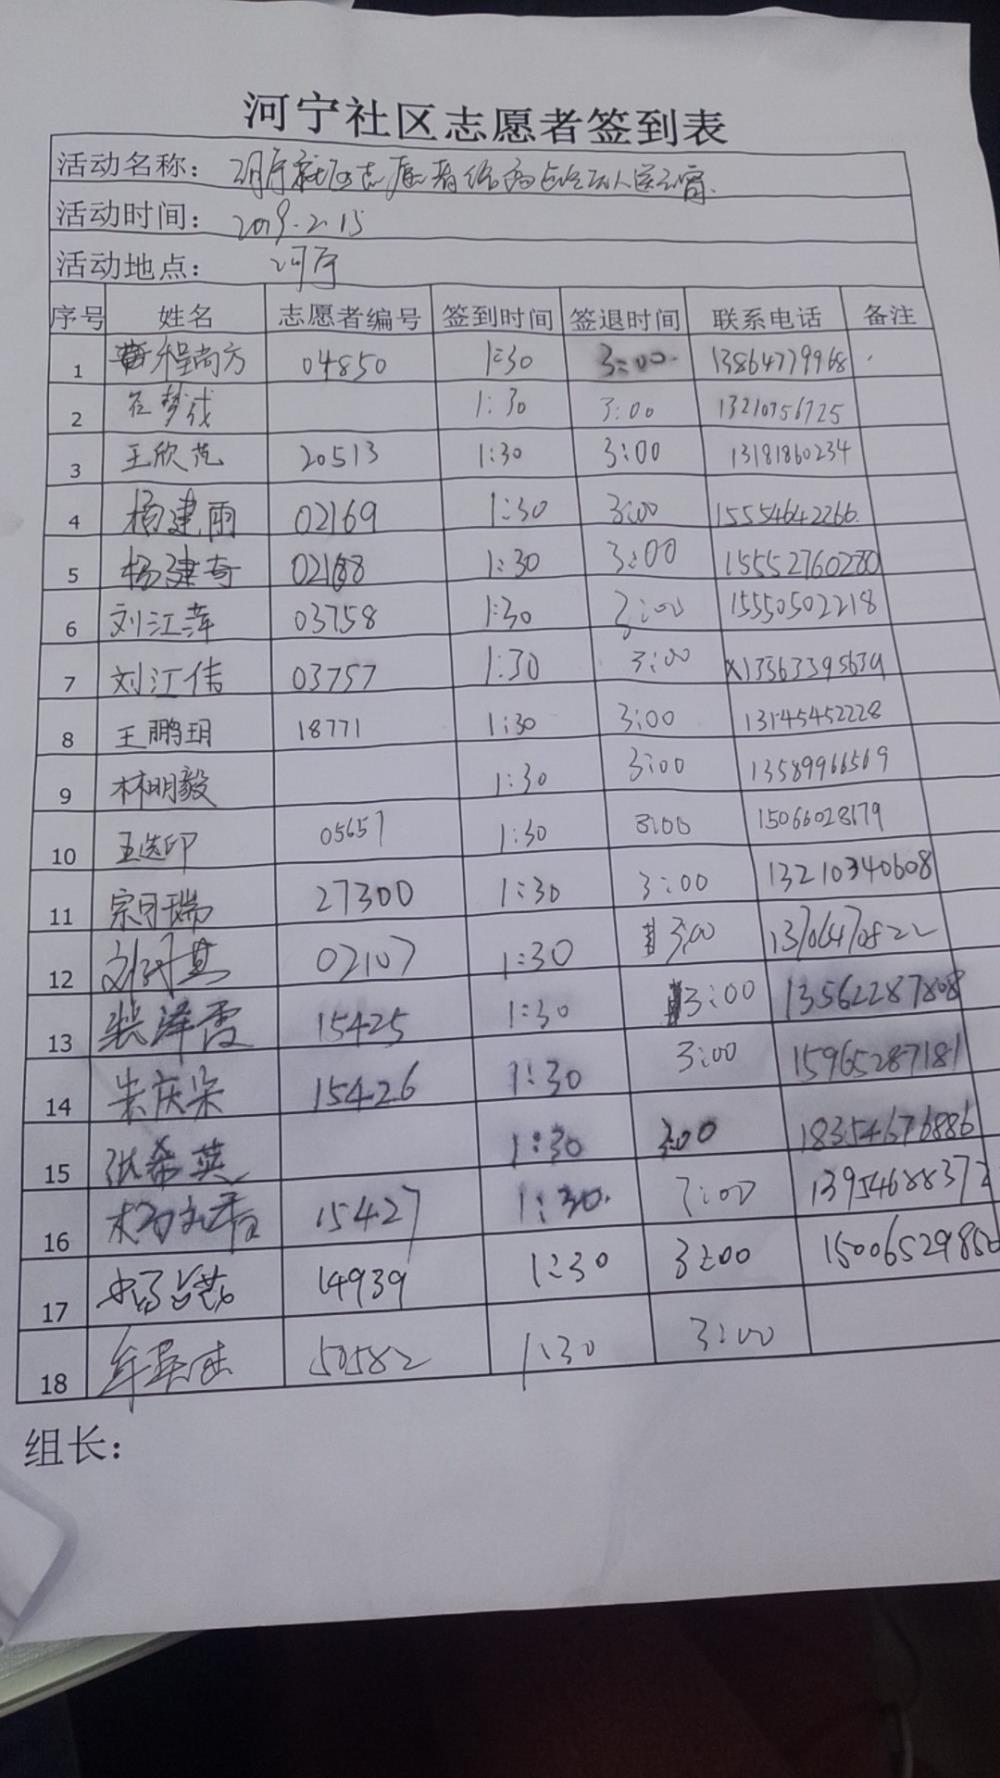 河宁社区志愿者签到表
活动名称：河宁社区志愿者给 老人送元宵.
活动时间：2019.2.15
活动地点：河宁
序号 姓名 志愿者编号 签到时间 签退时间 联系电话 备注
1 程尚方 04850 1:30 3:00 13864779968
2 1:30 3:00 13210756725
3 王欣苑 20513 1:30 3:00 13181860234
4 杨建雨 02169 1:30 3:00 15554642266
5 杨建奇 02188 1:30 3:00 15552760280
6 刘江萍 03758 1:30 3:00 15550502218
7 刘江倩 03757 1:30 3:00 13563395639
8 王鹏玥 18771 1:30 3:00 13145452228
9 林明毅 1:30 3:00 13589966569
10 05657 1:30 3:00 15066028179
11 宗可瑞 27300 1:30 3:00 13210340608
12 02107 1:30 3:00 13706470822
13 裴泽霞 15425 1:30 3:00 13562287808
14 宋庆荣 15426 1:30 3:00 15965287181
15 张希英 1:30 3:00 18354676886
16 15427 1:30 3:00 13954688372
17 14939 1:30 3:00 15006529850
18 50582 1:30 3:00
组长：